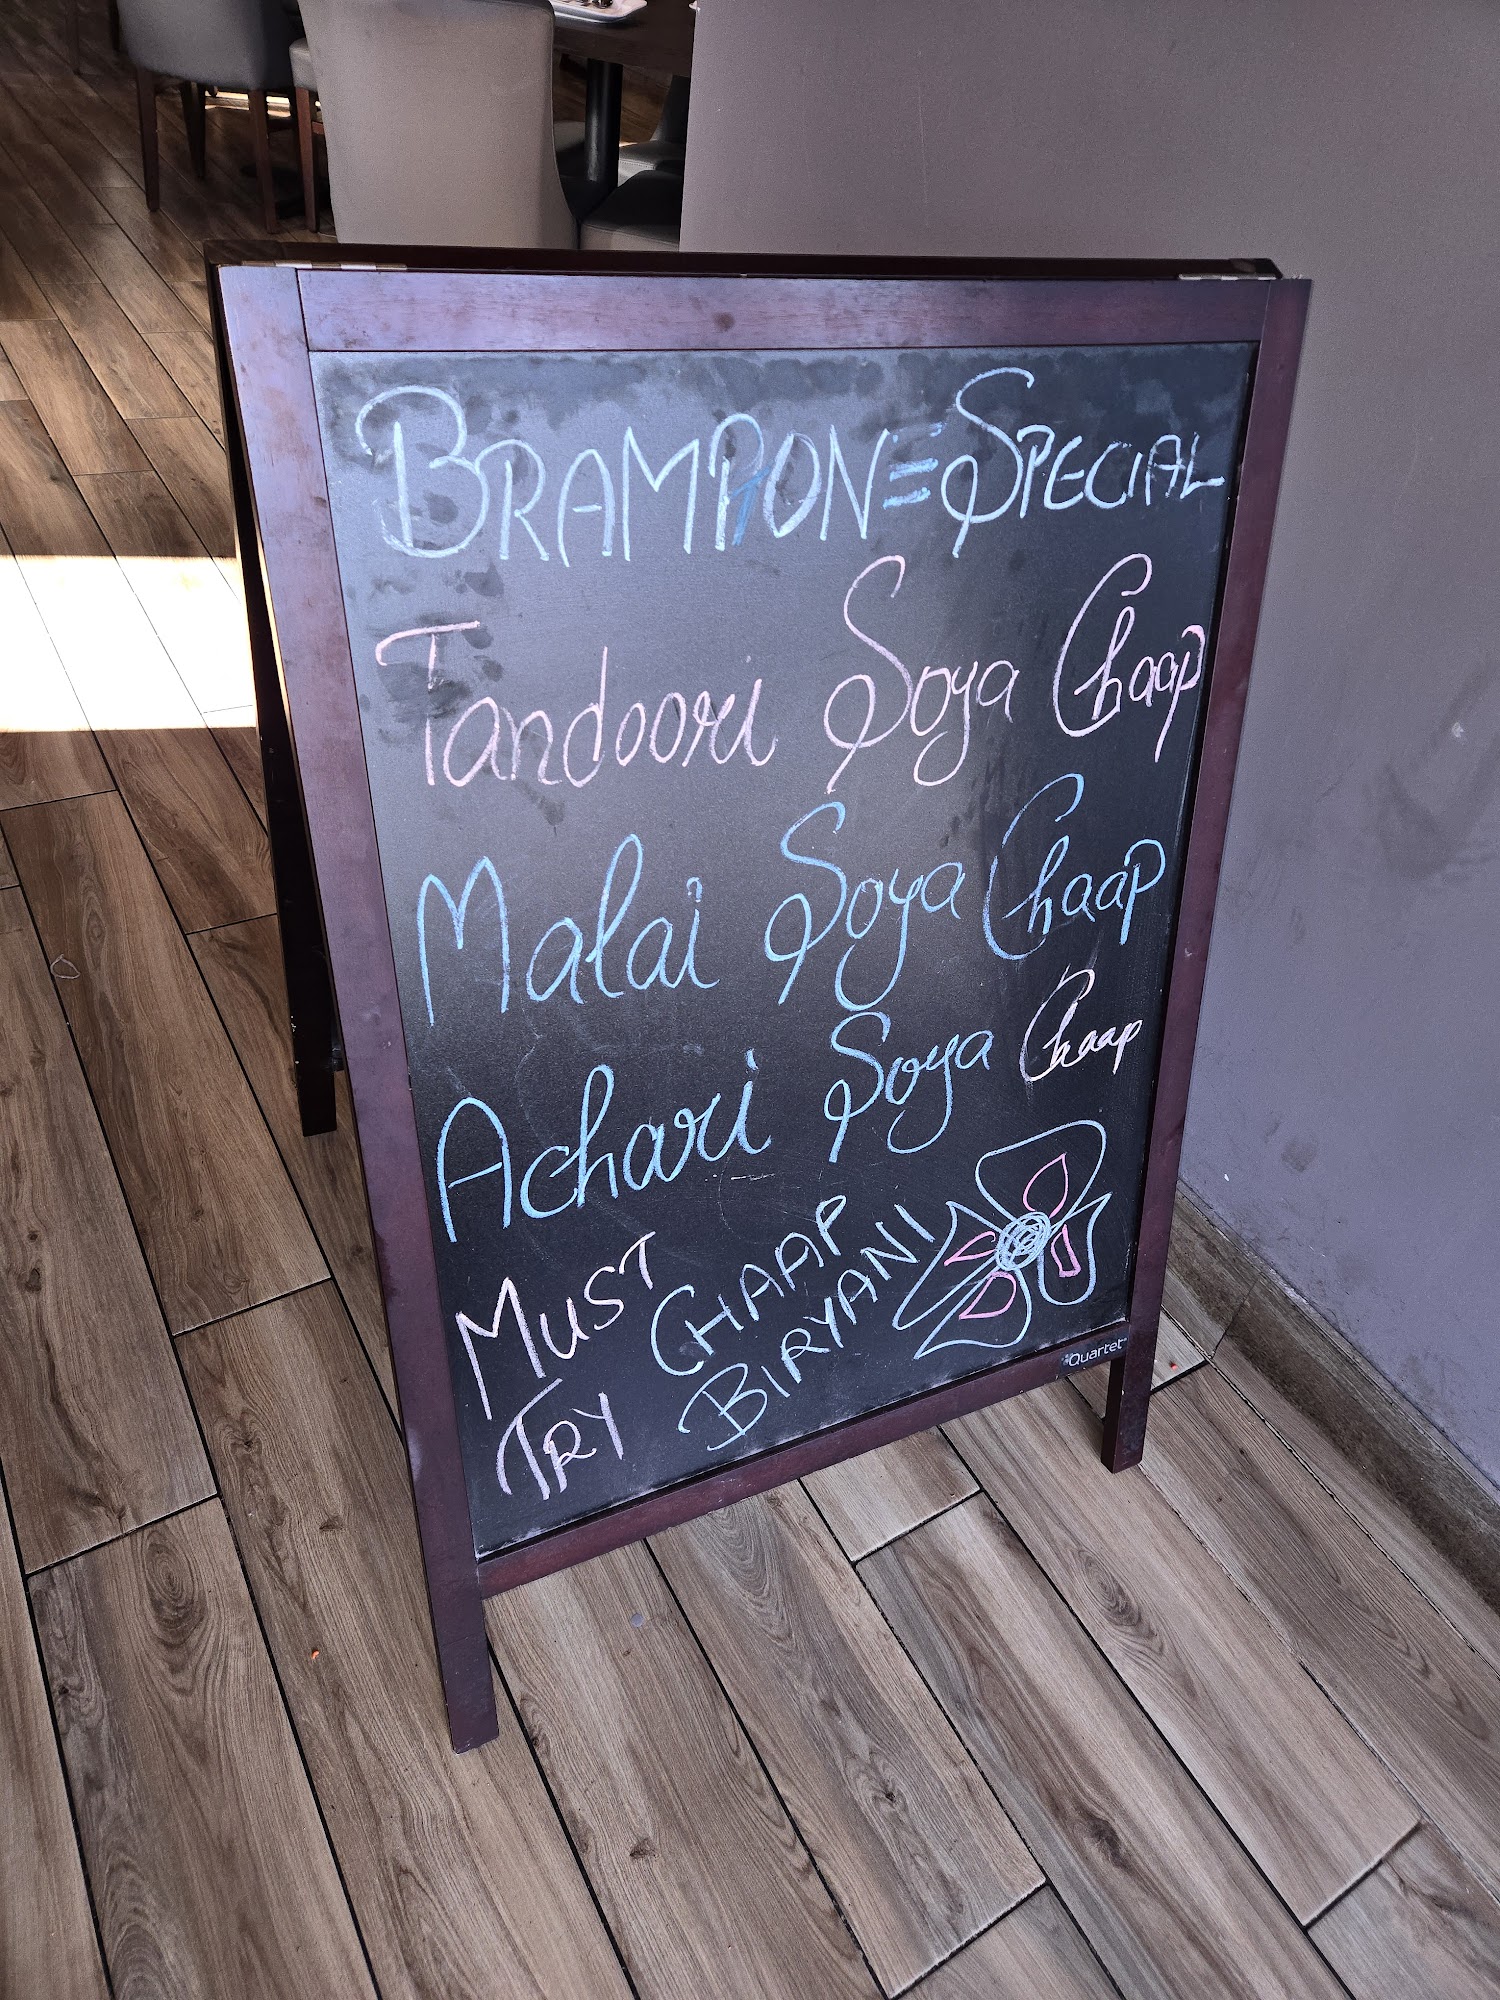 BRAMPTON = SPECIAL
Tandoori Soya Chaap
Malai Soya Chaap
Achari Soya Chaap
MUST TRY
CHAAP BIRYANI
Quartet